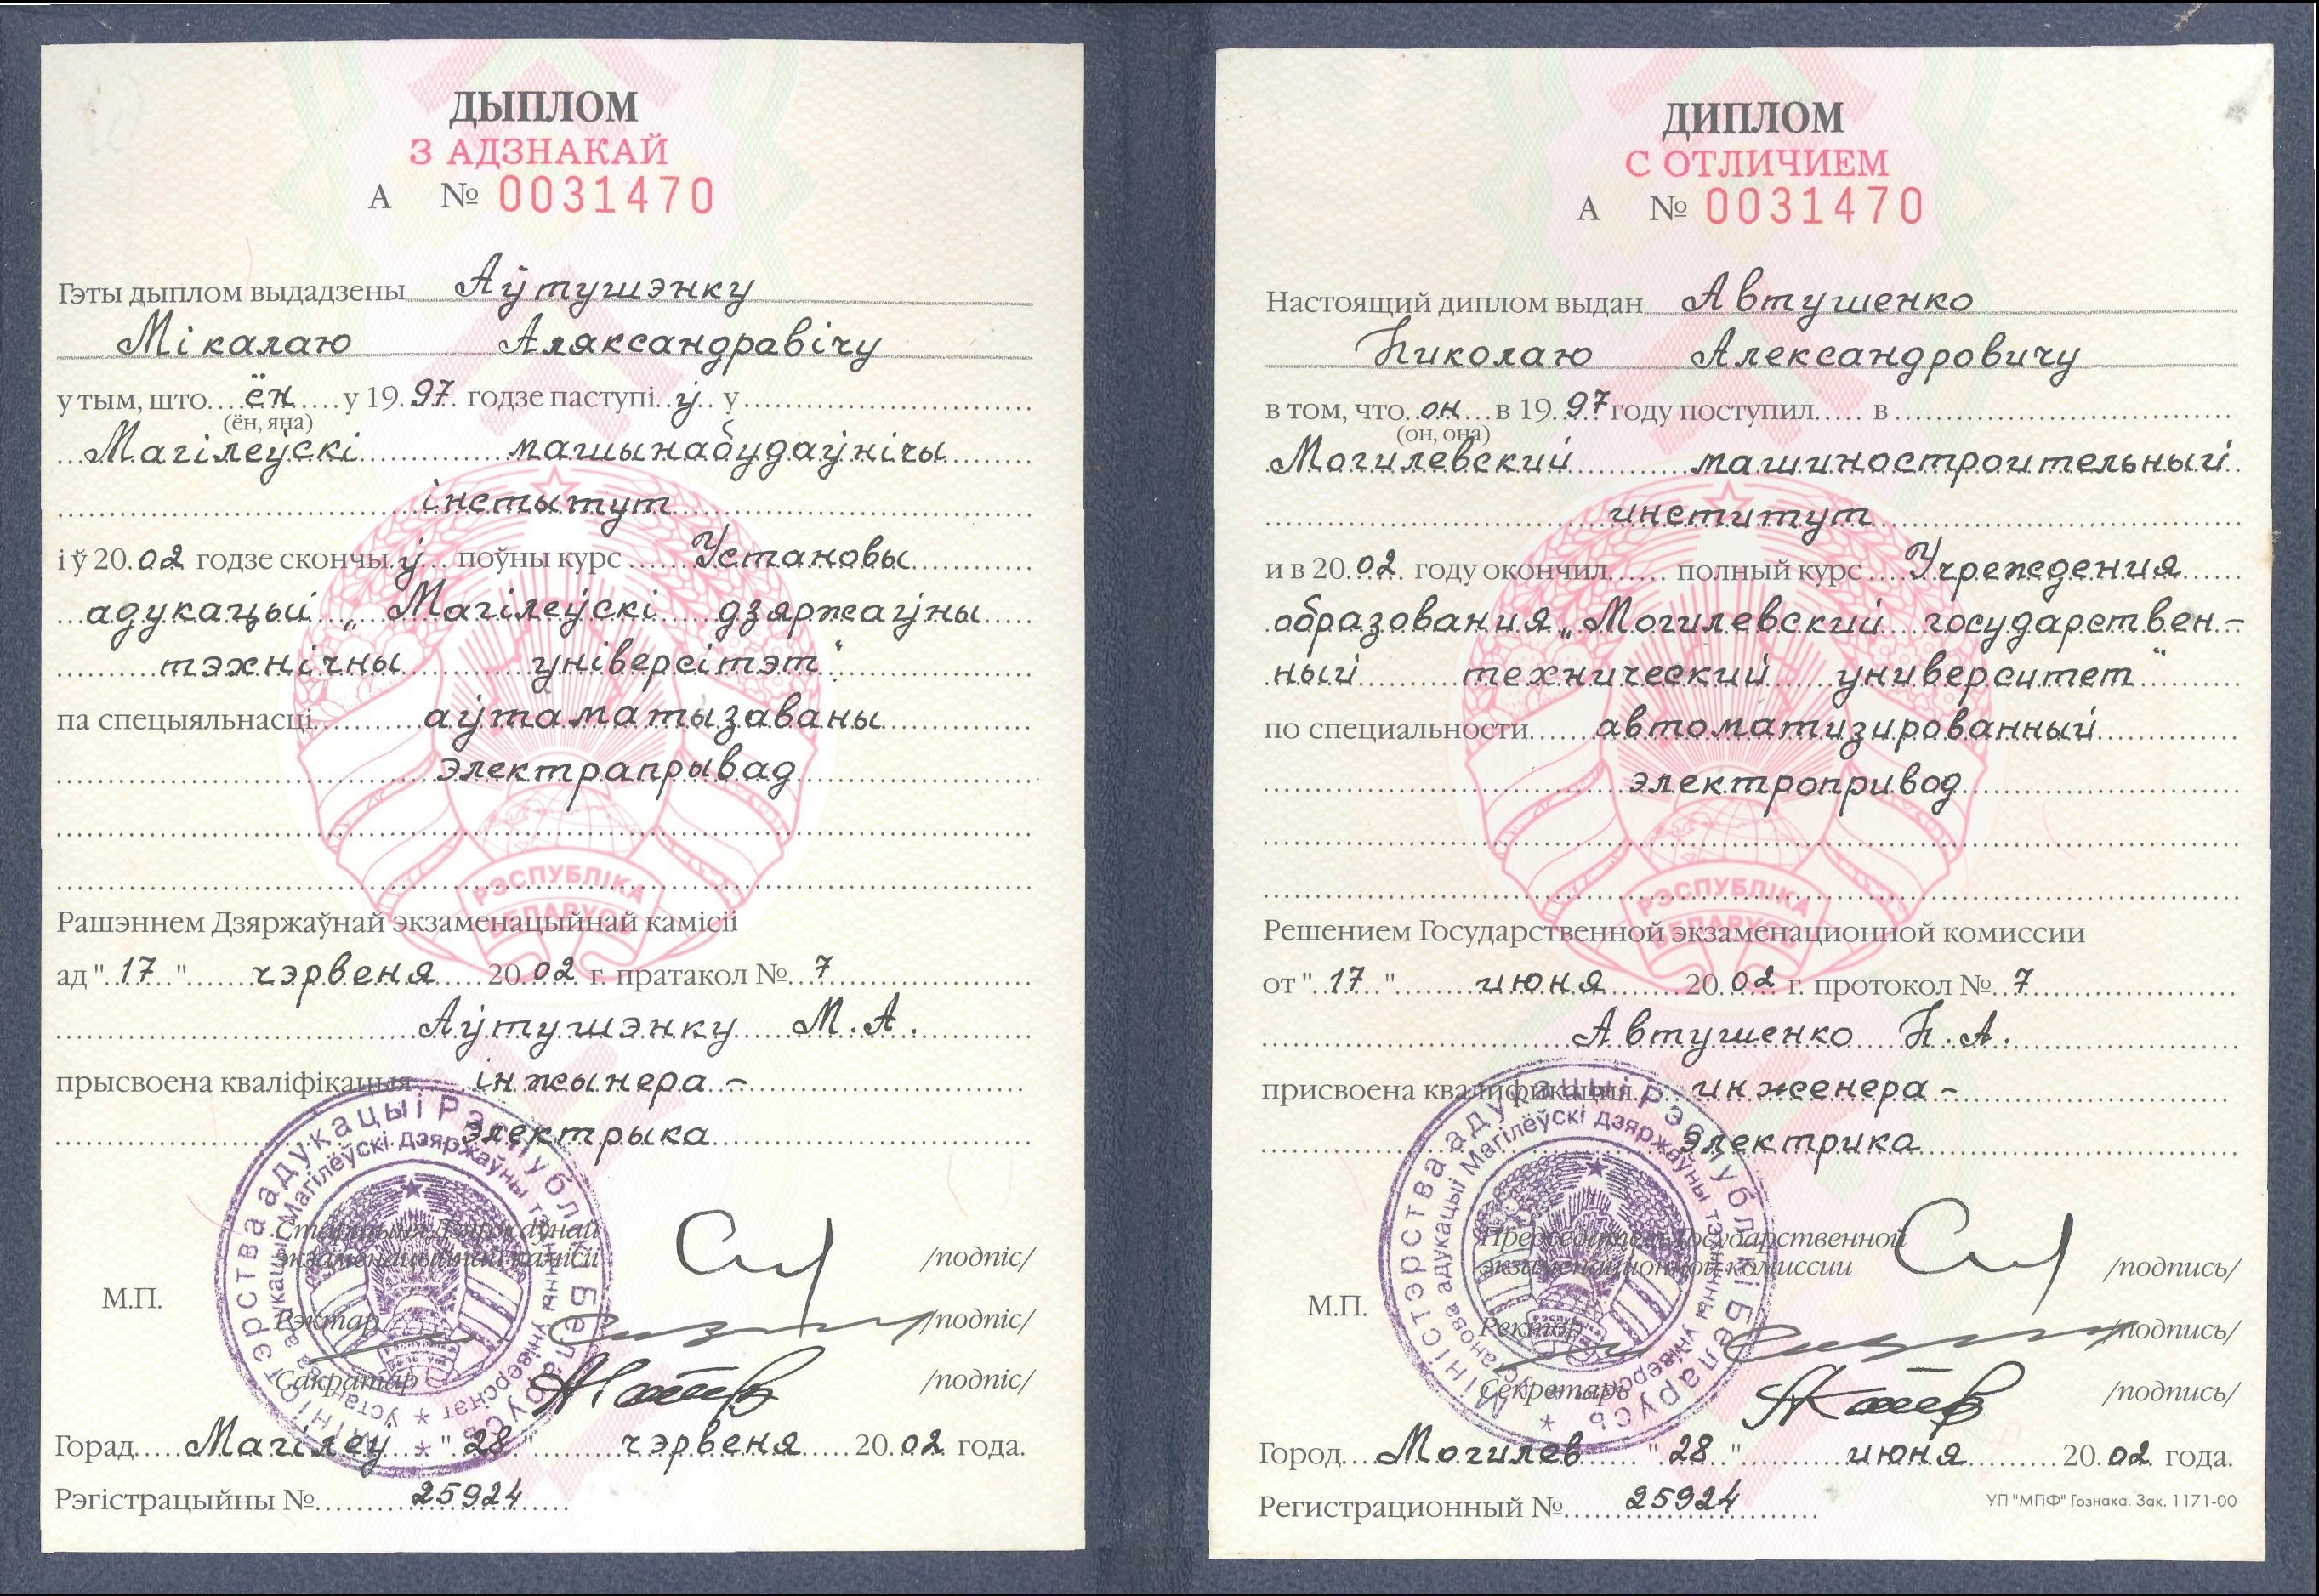 ДЫПЛОМ
З АДЗНАКАЙ
А № 0031470
Гэты дыплом выдадзены Аўтушэнку
Мікалаю Аляксандравічу
у тым, што ён у 1997 годзе паступіў у
(ён, яна)
Магілеўскі машынабудаўнічы
інстытут
і ў 2002 годзе скончыў поўны курс Установы
адукацыі „Магілеўскі дзяржаўны
тэхнічны універсітэт"
па спецыяльнасці аўтаматызаваны
электрапрывад
РЭСПУБЛІКА
БЕЛАРУСЬ
Рашэннем Дзяржаўнай экзаменацыйнай камісіі
ад "17" чэрвеня 2002 г. пратакол № 7
Аўтушэнку М.А.
прысвоена кваліфікацыя інжынера-
электрыка
Старшыня Дзяржаўнай
экзаменацыйнай камісіі /подпіс/
М.П.
Рэктар /подпіс/
Сакратар /подпіс/
Міністэрства адукацыі Рэспублікі Беларусь
Установа адукацыі Магілёўскі дзяржаўны тэхнічны універсітэт
Горад Магілеў "28" чэрвеня 2002 года.
Рэгістрацыйны № 25924
ДИПЛОМ
С ОТЛИЧИЕМ
А № 0031470
Настоящий диплом выдан Автушенко
Николаю Александровичу
в том, что он в 1997 году поступил в
(он, она)
Могилевский машиностроительный
институт
и в 2002 году окончил полный курс Учреждения
образования „Могилевский государствен-
ный технический университет"
по специальности автоматизированный
электропривод
РЭСПУБЛІКА
БЕЛАРУСЬ
Решением Государственной экзаменационной комиссии
от "17" июня 2002 г. протокол № 7
Автушенко Н.А.
присвоена квалификация инженера-
электрика
Председатель Государственной
экзаменационной комиссии /подпись/
М.П.
Ректор /подпись/
Секретарь /подпись/
Міністэрства адукацыі Рэспублікі Беларусь
Установа адукацыі Магілёўскі дзяржаўны тэхнічны універсітэт
Город Могилев "28" июня 2002 года.
Регистрационный № 25924
УП "МПФ" Гознака. Зак. 1171-00